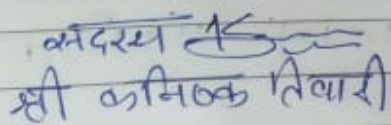 सदस्य
श्री कनिष्क तिवारी